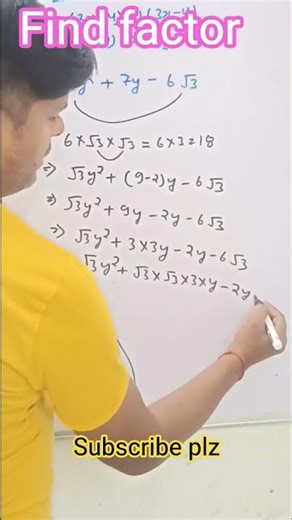 Find factor
y² + 7y - 6√3
6×√3×√3 = 6×3=18
⇒ √3y² + (9-2)y - 6√3
⇒ √3y² + 9y - 2y - 6√3
⇒ √3y² + 3×3y - 2y - 6√3
√3y² + √3×√3×3×y - 2y
Subscribe plz